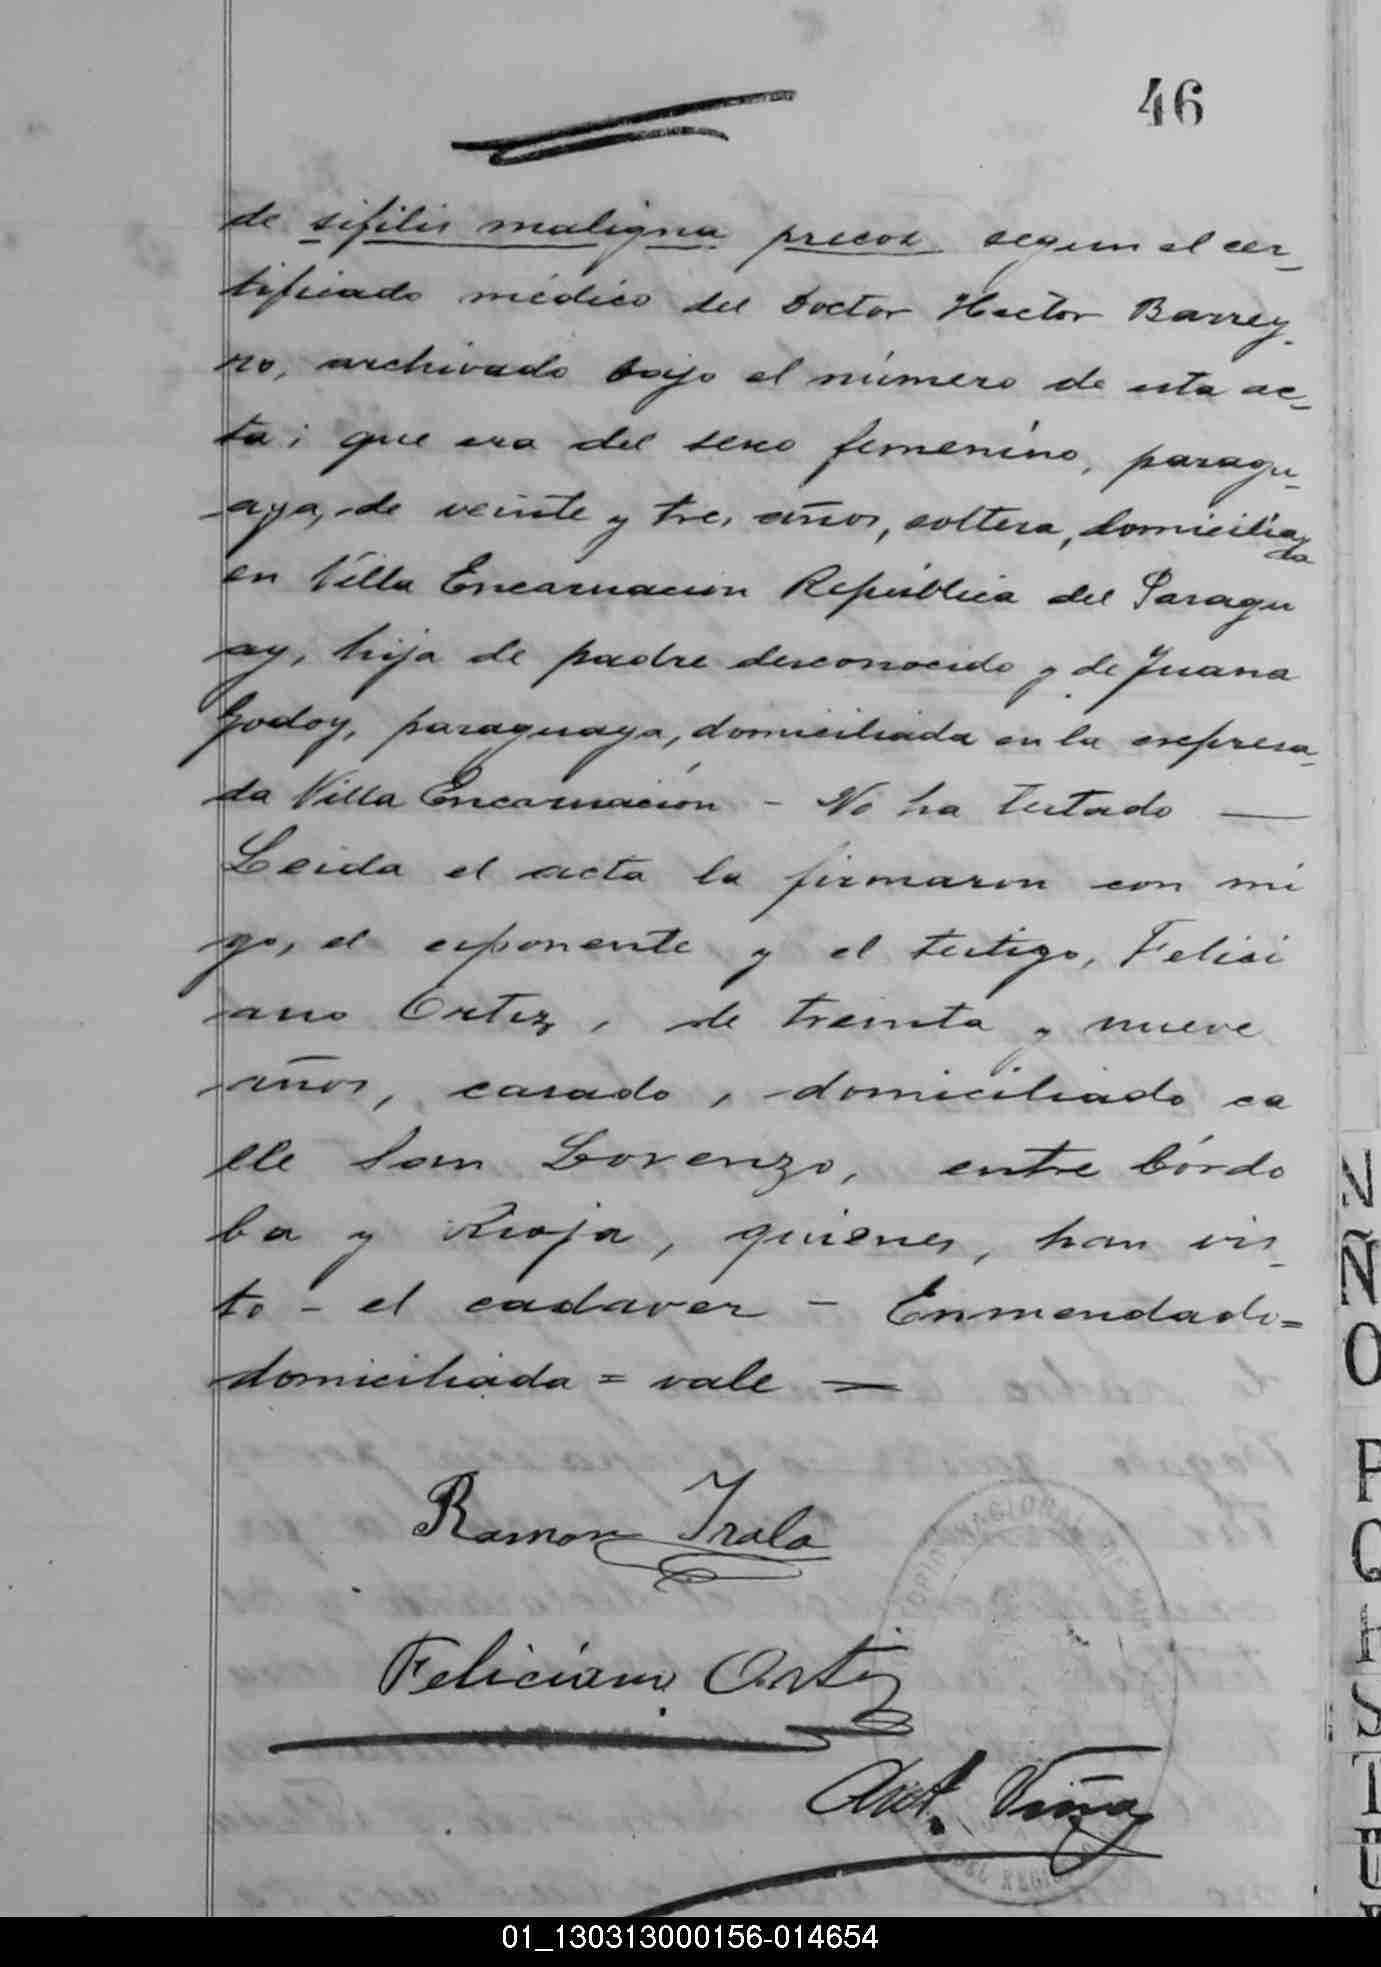 46
de sifilis maligna precoz segun el cer_
tificado médico del Doctor Hector Barrey_
ro, archivado bajo el número de esta ac_
ta; que era del sexo femenino, paragu_
aya, de veinte y tres años, soltera, domicilia
da
en Villa Encarnacion República del Paragu
ay, hija de padre desconocido y de Juana
Godoy, paraguaya, domiciliada en la expresa_
da Villa Encarnación - No ha testado —
Leida el acta la firmaron con mi
go, el exponente y el testigo, Felisi
ano Ortiz, de treinta y nueve
años, casado, domiciliado ca
lle San Lorenzo, entre Córdo
ba y Rioja, quienes, han vis_
to - el cadaver - Enmendado=
domiciliada = vale —
Ramon Irala
Feliciano Ortiz
Ant. Viña
01_130313000156-014654